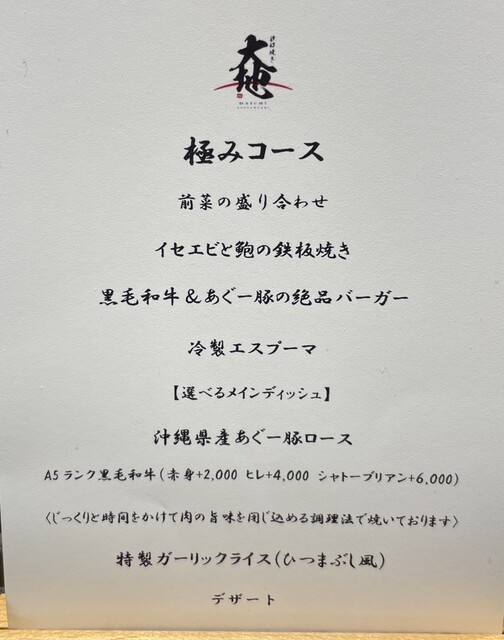 鉄板焼き
大地
極みコース
前菜の盛り合わせ
イセエビと鮑の鉄板焼き
黒毛和牛&あぐー豚の絶品バーガー
冷製エスプーマ
【選べるメインディッシュ】
沖縄県産あぐー豚ロース
A5ランク黒毛和牛(赤身+2,000 ヒレ+4,000 シャトーブリアン+6,000)
〈じっくりと時間をかけて肉の旨味を閉じ込める調理法で焼いております〉
特製ガーリックライス(ひつまぶし風)
デザート